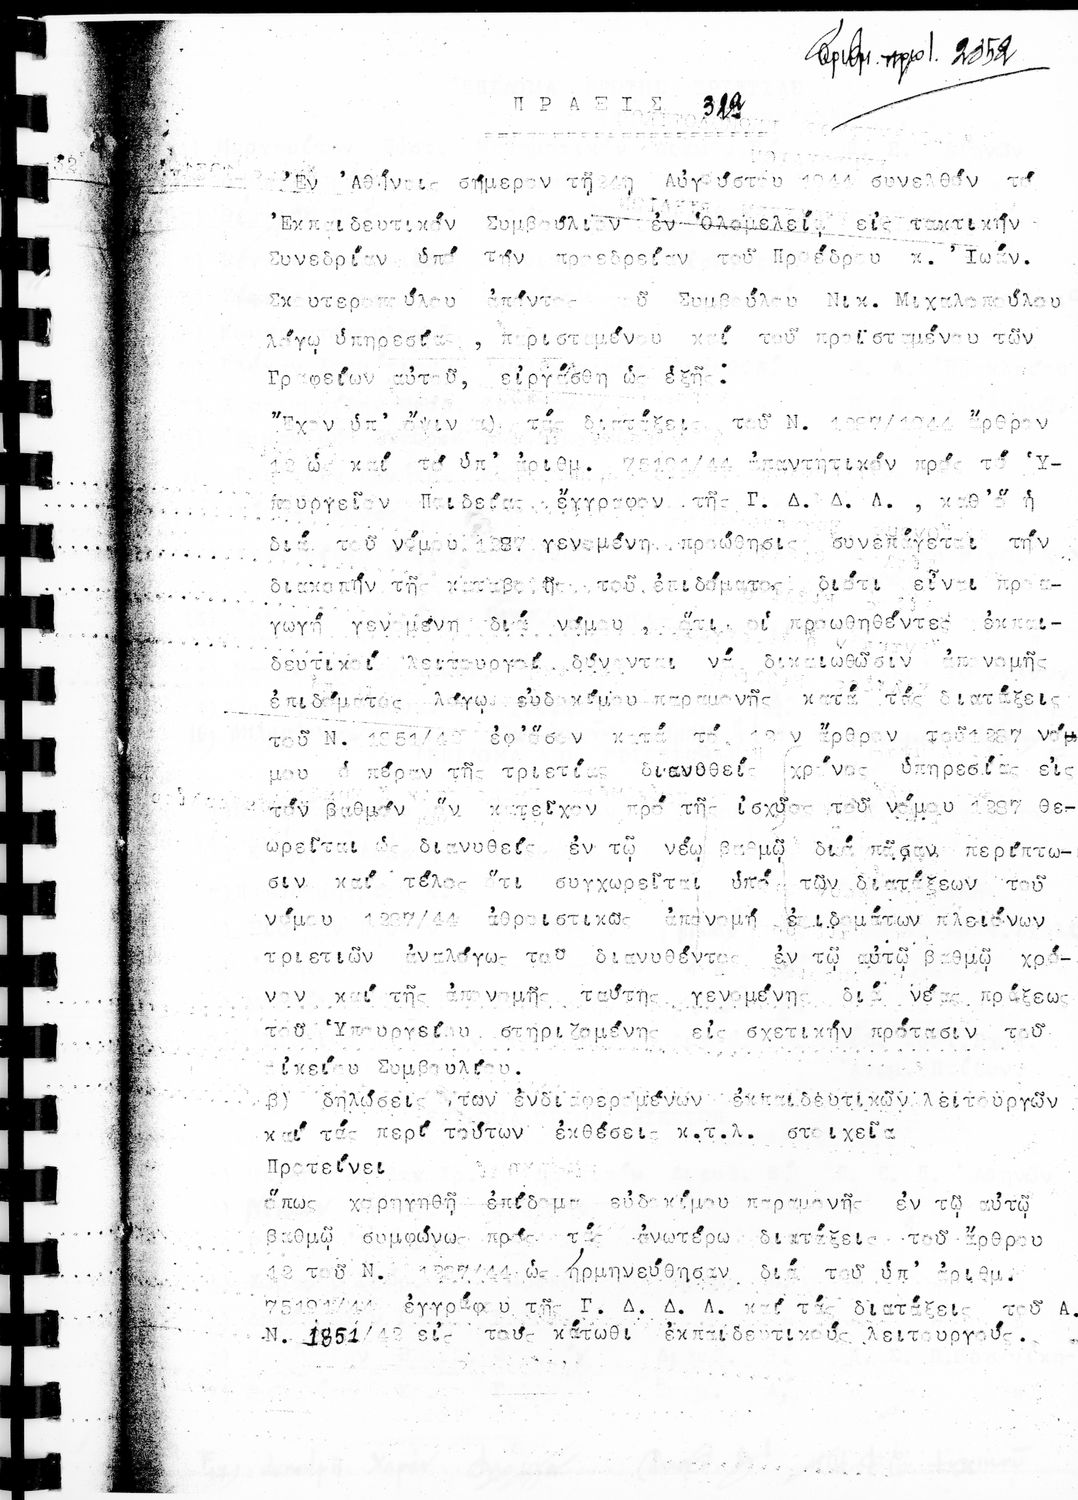 Ἀριθμ. πρωτ. 2352
ΠΡΑΞΙΣ 312
Ἐν Ἀθήναις σήμερον τῇ Αὐγούστου 1944 συνελθόν τό
Ἐκπαιδευτικόν Συμβούλιον ἐν Ὁλομελείᾳ εἰς τακτικήν
Συνεδρίαν ὑπό τήν προεδρείαν τοῦ Προέδρου κ. Ἰωάν.
Σκουτεροπούλου ἀπόντος τοῦ Συμβούλου Νικ. Μιχαλοπούλου
λόγῳ ὑπηρεσίας, παρισταμένου καί τοῦ προϊσταμένου τῶν
Γραφείων αὐτοῦ, εἰργάσθη ὡς ἑξῆς:
Ἔχον ὑπ' ὄψιν α) τάς διατάξεις τοῦ Ν. 1287/1944 ἄρθρον
12 ὡς καί τό ὑπ' ἀριθμ. 75191/44 ἀπαντητικόν πρός τό Ὑ-
πουργεῖον Παιδείας ἔγγραφον τῆς Γ. Δ. Δ. Λ., καθ' ὅ ἡ
διά τοῦ νόμου 1287 γενομένη προώθησις συνεπάγεται τήν
διακοπήν τῆς καταβολῆς τοῦ ἐπιδόματος διότι εἶναι προα-
γωγή γενομένη διά νόμου, ὅτι οἱ προωθηθέντες ἐκπαι-
δευτικοί λειτουργοί δύνανται νά δικαιωθῶσιν ἀπονομῆς
ἐπιδόματος λόγῳ εὐδοκίμου παραμονῆς κατά τάς διατάξεις
τοῦ Ν. 1851/42 ἐφ' ὅσον κατά τό 12ον ἄρθρον τοῦ 1287 νόμ
μου ὁ πέραν τῆς τριετίας διανυθείς χρόνος ὑπηρεσίας εἰς
τόν βαθμόν ὅν κατεῖχον πρό τῆς ἰσχύος τοῦ νόμου 1287 θε-
ωρεῖται ὡς διανυθείς ἐν τῷ νέῳ βαθμῷ διά πᾶσαν περίπτω-
σιν καί τέλος ὅτι συγχωρεῖται ὑπό τῶν διατάξεων τοῦ
νόμου 1287/44 ἀθροιστικῶς ἀπονομή ἐπιδομάτων πλειόνων
τριετιῶν ἀναλόγως τοῦ διανυθέντος ἐν τῷ αὐτῷ βαθμῷ χρό-
νου καί τῆς ἀπονομῆς ταύτης γενομένης διά νέας πράξεως
τοῦ Ὑπουργείου στηριζομένης εἰς σχετικήν πρότασιν τοῦ
οἰκείου Συμβουλίου.
β) δηλώσεις τῶν ἐνδιαφερομένων ἐκπαιδευτικῶν λειτουργῶν
καί τάς περί τούτων ἐκθέσεις κ.τ.λ. στοιχεῖα
Προτείνει
ὅπως χορηγηθῇ ἐπίδομα εὐδοκίμου παραμονῆς ἐν τῷ αὐτῷ
βαθμῷ συμφώνως πρός τάς ἀνωτέρω διατάξεις τοῦ ἄρθρου
12 τοῦ Ν. 1287/44 ὡς ἡρμηνεύθησαν διά τοῦ ὑπ' ἀριθμ.
75191/44 ἐγγράφου τῆς Γ. Δ. Δ. Λ. καί τάς διατάξεις τοῦ Α.
Ν. 1851/42 εἰς τούς κάτωθι ἐκπαιδευτικούς λειτουργούς.